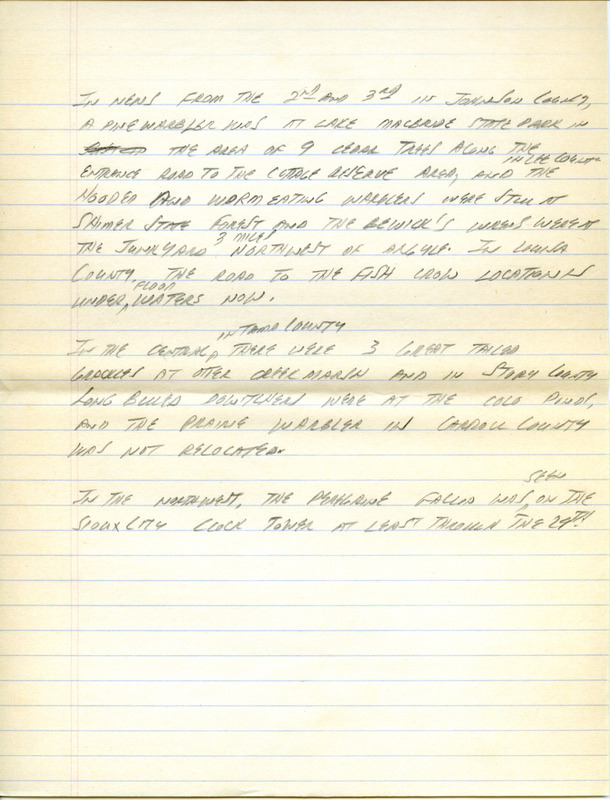 IN NEWS FROM THE 2nd AND 3rd IN JOHNSON COUNTY,
A PINE WARBLER WAS AT LAKE MACBRIDE STATE PARK IN
THE AREA OF 9 CEDAR TREES ALONG THE
ENTRANCE ROAD TO THE COTTAGE RESERVE AREA, AND THE IN LEE COUNTY
HOODED AND WORM EATING WARBLERS WERE STILL AT
SHIMEK STATE FOREST AND THE BEWICK'S WRENS WERE AT
THE JUNKYARD 3 MILES NORTHWEST OF ARGYLE. IN LOUISA
COUNTY THE ROAD TO THE FISH CROW LOCATION IS
UNDER FLOOD WATERS NOW.
IN THE CENTRAL, IN TAMA COUNTY THERE WERE 3 GREAT TAILED
GRACKLES AT OTTER CREEK MARSH AND IN STORY COUNTY
LONG BILLED DOWITCHERS WERE AT THE COLO PONDS,
AND THE PRAIRIE WARBLER IN CARROLL COUNTY
WAS NOT RELOCATED.
IN THE NORTHWEST, THE PEREGRINE FALCON WAS SEEN ON THE
SIOUX CITY CLOCK TOWER AT LEAST THROUGH THE 29TH.